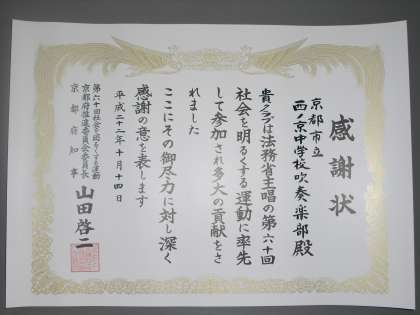 感謝状
京都市立
西ノ京中学校吹奏楽部殿
貴クラブは法務省主唱の第六十回
社会を明るくする運動に率先
して参加され多大の貢献をさ
れました
ここにその御尽力に対し深く
感謝の意を表します
平成二十二年十月十四日
第六十回社会を明るくする運動
京都府推進委員会委員長
京都府知事
山田啓二